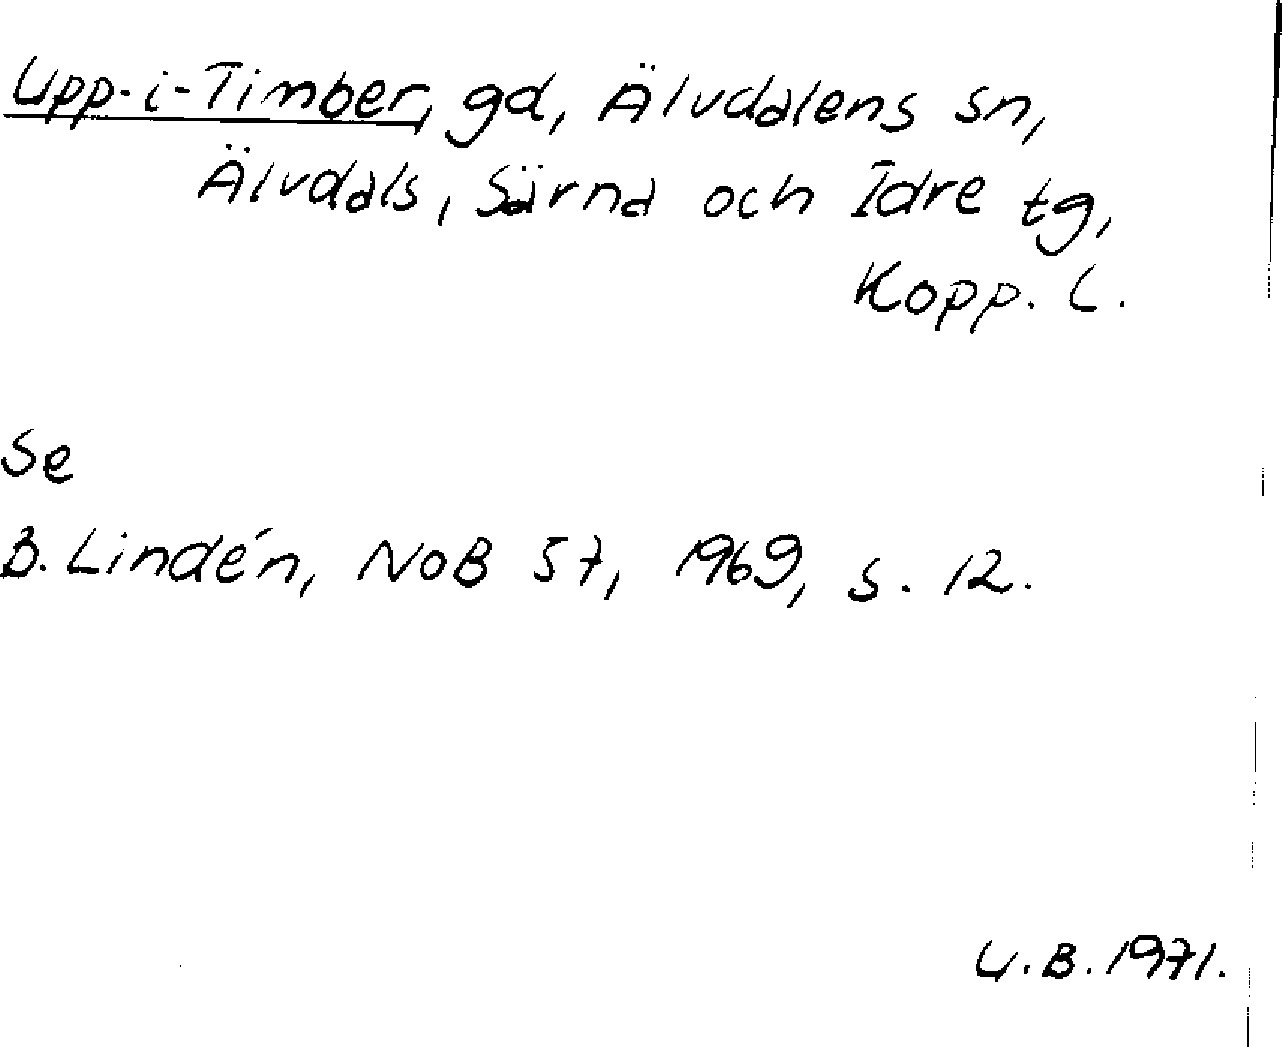 Upp-i-Timber, gd, Älvdalens sn,
Älvdals, Särna och Idre tg,
Kopp. L.
Se
B. Lindén, NoB 57, 1969, s. 12.
U.B. 1971.